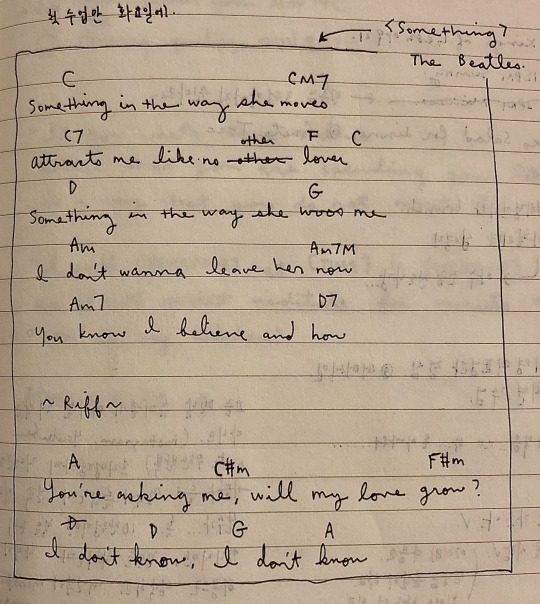 첫 수업만 화요일에.
<Something>
The Beatles.
C CM7
Something in the way she moves
C7 other F C
attracts me like no other lover
D G
Something in the way she woos me
Am Am7M
I don't wanna leave her now
Am7 D7
You know I believe and how
~ Riff ~
A C#m F#m
You're asking me, will my love grow?
D D G A
I don't know, I don't know